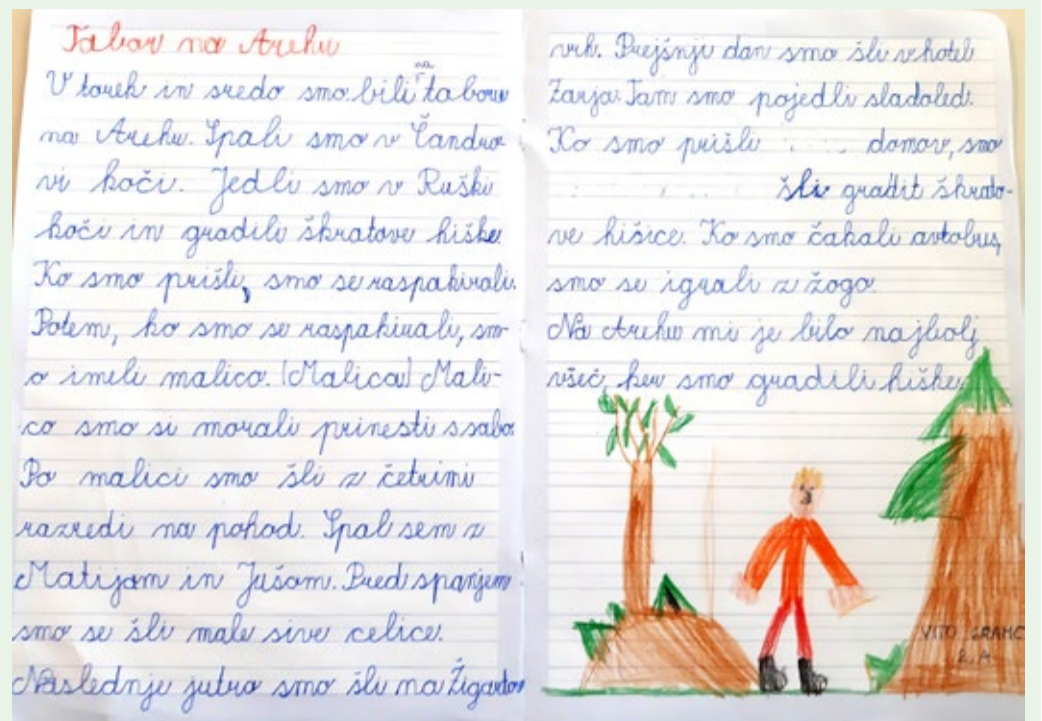 Tabor na Arehu
V torek in sredo smo bili na taboru
na Arehu. Spali smo v Čandro
vi koči. Jedli smo v Ruški
koči in gradili škratove hiške.
Ko smo prišli, smo se raspakirali.
Potem, ko smo se raspakirali, sm-
o imeli malico. (Malica) Mali-
co smo si morali prinesti s sabo.
Po malici smo šli z četrimi
razredi na pohod. Spal sem z
Matijam in Jušom. Pred spanjem
smo se šli male sive celice.
Naslednje jutro smo šli na Žigartov
vrh. Prejšnji dan smo šli v hotel
Zarja. Tam smo pojedli sladoled.
Ko smo prišli domov, smo
šli gradit škrato-
ve hišice. Ko smo čakali avtobus,
smo se igrali z žogo.
Na Arehu mi je bilo najbolj
všeč, ker smo gradili hiške.
VITO GRAMC
2. A